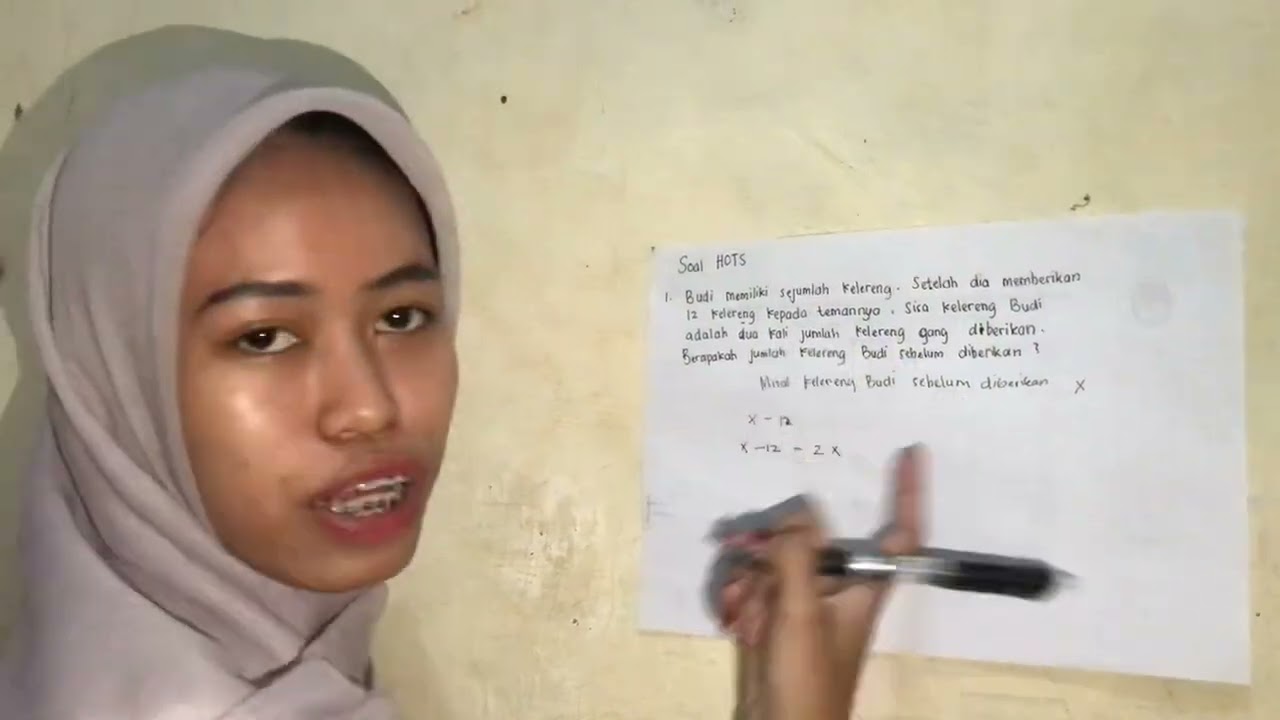 Soal HOTS
1. Budi memiliki sejumlah kelereng. Setelah dia memberikan
12 kelereng kepada temannya. Sisa kelereng Budi
adalah dua kali jumlah kelereng yang diberikan.
Berapakah jumlah kelereng Budi sebelum diberikan ?
Misal kelereng Budi sebelum diberikan x
x - 12
x - 12 = 2 x